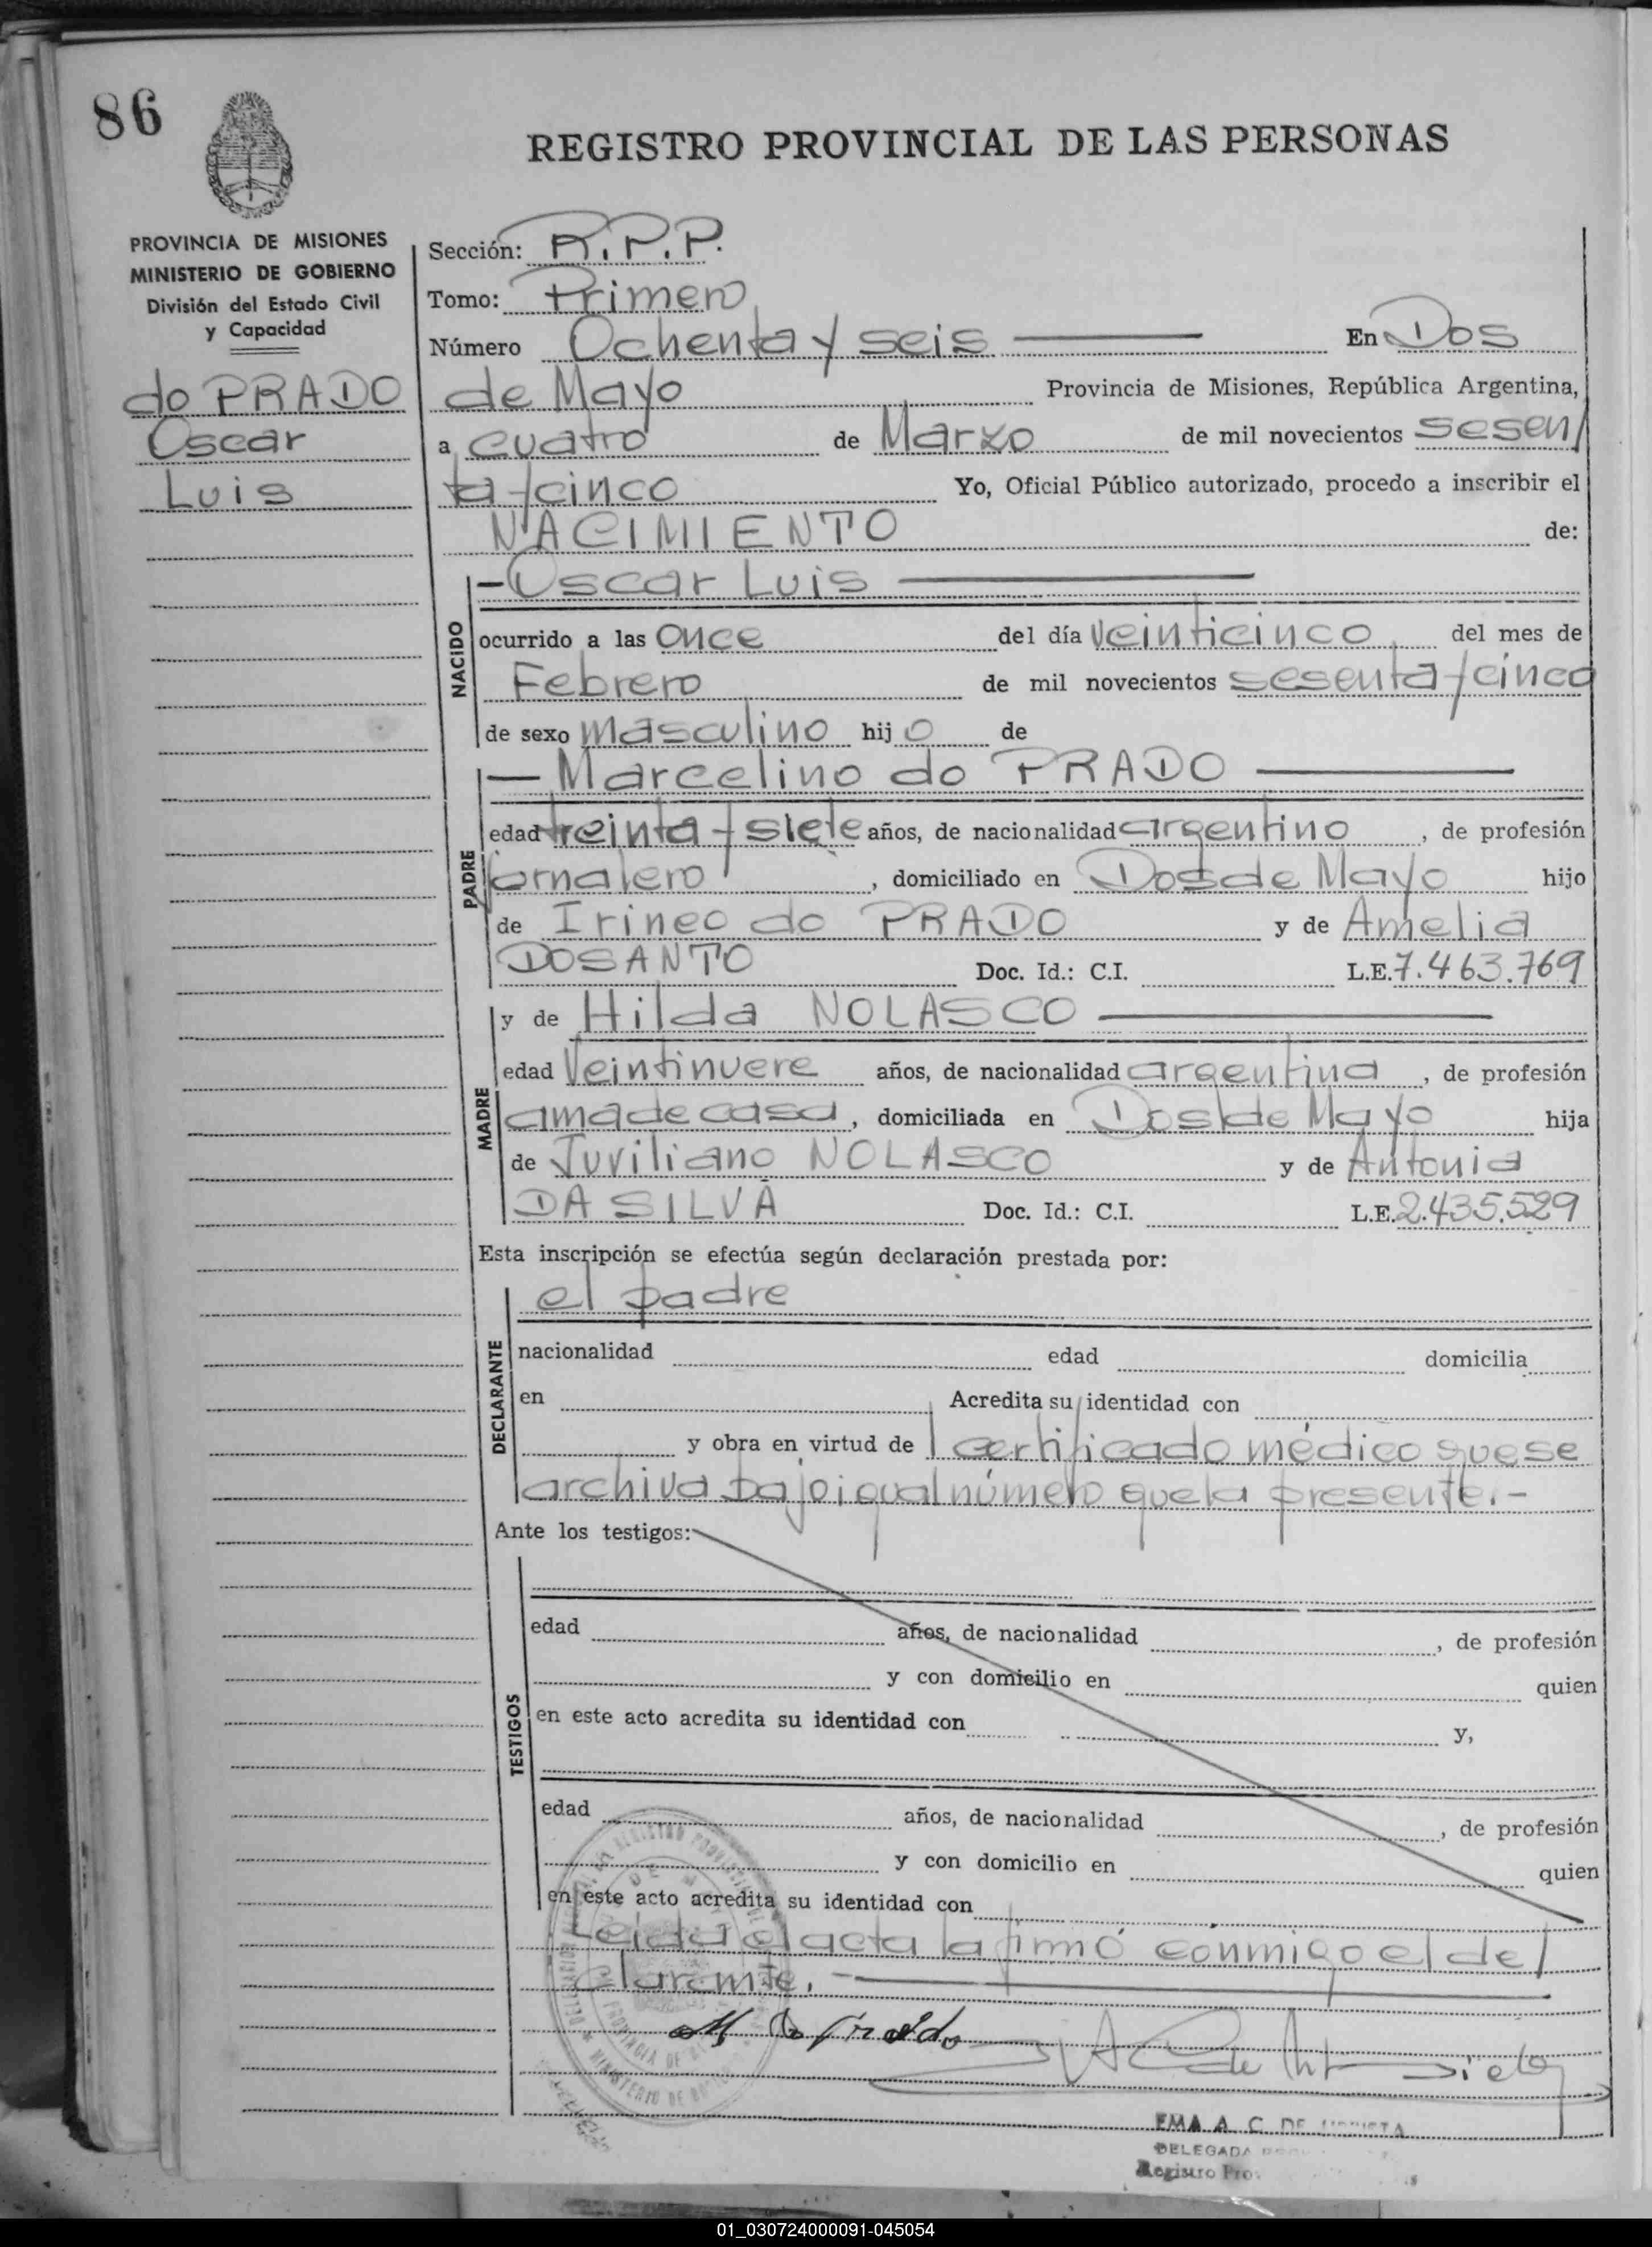 86
REGISTRO PROVINCIAL DE LAS PERSONAS
PROVINCIA DE MISIONES
MINISTERIO DE GOBIERNO
División del Estado Civil
y Capacidad
do PRADO
Oscar
Luis
Sección: R.P.P.
Tomo: Primero
Número Ochenta y seis En Dos
de Mayo Provincia de Misiones, República Argentina,
a cuatro de Marzo de mil novecientos sesen/
ta y cinco Yo, Oficial Público autorizado, procedo a inscribir el
NACIMIENTO de:
NACIDO
- Oscar Luis
ocurrido a las once del día veinticinco del mes de
Febrero de mil novecientos sesenta y cinco
de sexo masculino hijo de
PADRE
Marcelino do PRADO
edad treinta y siete años, de nacionalidad argentino, de profesión
jornalero, domiciliado en Dos de Mayo hijo
de Irineo do PRADO y de Amelia
DOSANTO Doc. Id.: C.I. L.E. 7.463.769
MADRE
y de Hilda NOLASCO
edad Veintinueve años, de nacionalidad argentina, de profesión
ama de casa, domiciliada en Dos de Mayo hija
de Juviliano NOLASCO y de Antonia
DA SILVA Doc. Id.: C.I. L.E. 2.435.529
Esta inscripción se efectúa según declaración prestada por:
DECLARANTE
el padre
nacionalidad edad domicilia
en Acredita su identidad con
y obra en virtud de certificado médico que se
archiva bajo igual número que la presente.-
Ante los testigos:
TESTIGOS
edad años, de nacionalidad, de profesión
y con domicilio en quien
en este acto acredita su identidad con y,
edad años, de nacionalidad, de profesión
y con domicilio en quien
en este acto acredita su identidad con
Leida el acta la firmó conmigo el de/
clarante.-
M do Prado
EMA A. C. DE
DELEGADA
Registro
01_030724000091-045054